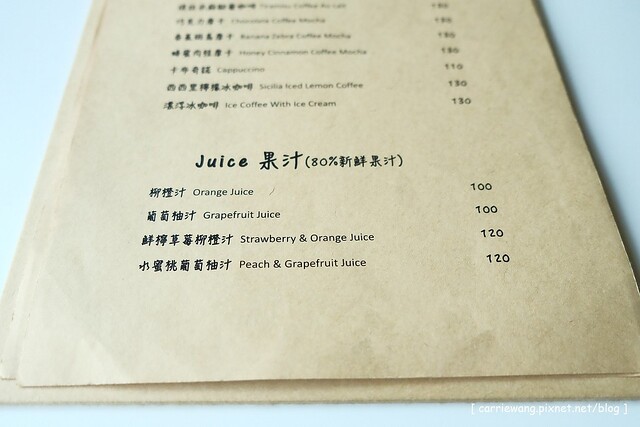 提拉米蘇鬆餅咖啡 Tiramisu Coffee Au Lait 130
巧克力摩卡 Chocolate Coffee Mocha 130
香蕉斑馬摩卡 Banana Zebra Coffee Mocha 130
蜂蜜肉桂摩卡 Honey Cinnamon Coffee Mocha 130
卡布奇諾 Cappuccino 110
西西里檸檬冰咖啡 Sicilia Iced Lemon Coffee 130
漂浮冰咖啡 Ice Coffee With Ice Cream 130
Juice 果汁(80%新鮮果汁)
柳橙汁 Orange Juice 100
葡萄柚汁 Grapefruit Juice 100
鮮檸草莓柳橙汁 Strawberry & Orange Juice 120
水蜜桃葡萄柚汁 Peach & Grapefruit Juice 120
[ carriewang.pixnet.net/blog ]